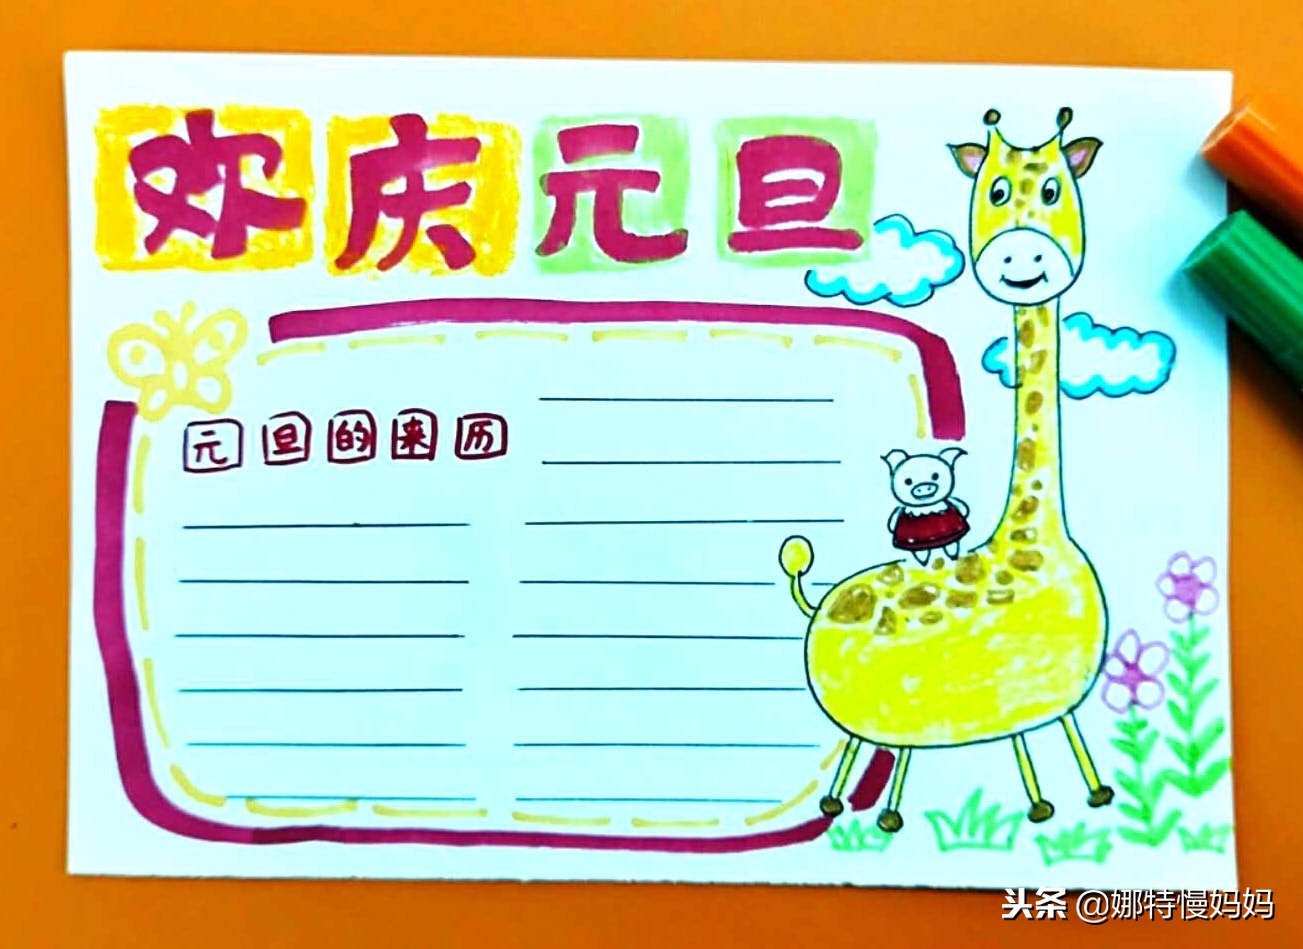 欢庆元旦
元旦的来历
头条 @娜特慢妈妈